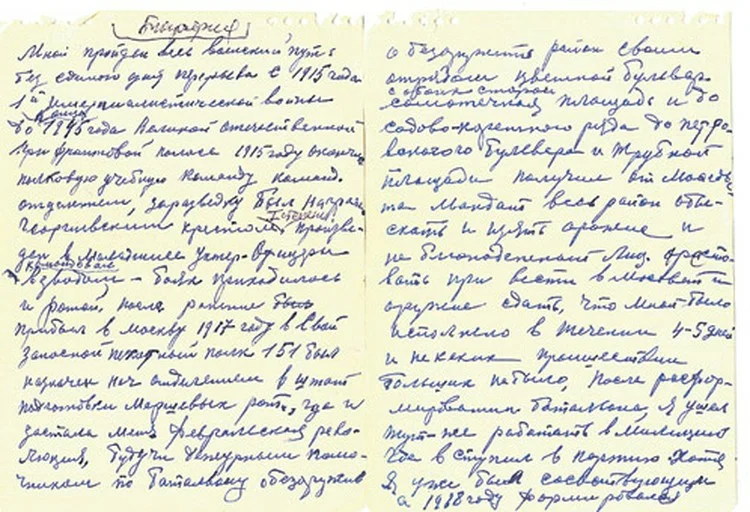 Биография
Мной пройден весь воинский путь
без единого дня перерыва с 1915 года
1й империалистической войны
до конца 1945 года Великой отечественной
При фронтовой полосе 1915 году окончил
полковую учебную команду команд.
отделением, за разведку был награж
Георгиевским крестом I степени, произве-
ден в младшие унтер-офицеры
командовал
взводом – приходилось
и ротой, после ранение было
прибыл в москву 1917 году в Свой
Запасной пехотный полк 151 был
назначен нач отделением в штат
подготовки маршевых рот, где и
застала меня Февральская рево-
люция, будучи дежурным помо-
чником по баталиону обезоружив
о безоружить район своим
отрядом цветной бульвар
с обоих сторон
самотечная площадь и до
садово-коретного ряда до петро-
вского бульвара и Трубной
площади получил от
та мандат весь район обы-
скать и изять оружие и
не благонадежных лиц аресто-
вать при вести в и
оружие сдать, что мной было
исполнено в течении 4-5 дней
и не каких происшествии
больших небыло, После расфор-
мирования баталиона, я ушел
тут-же работать в милицию
где вступил в партию хотя
я уже был сосвствующим
а 1918 году формировался